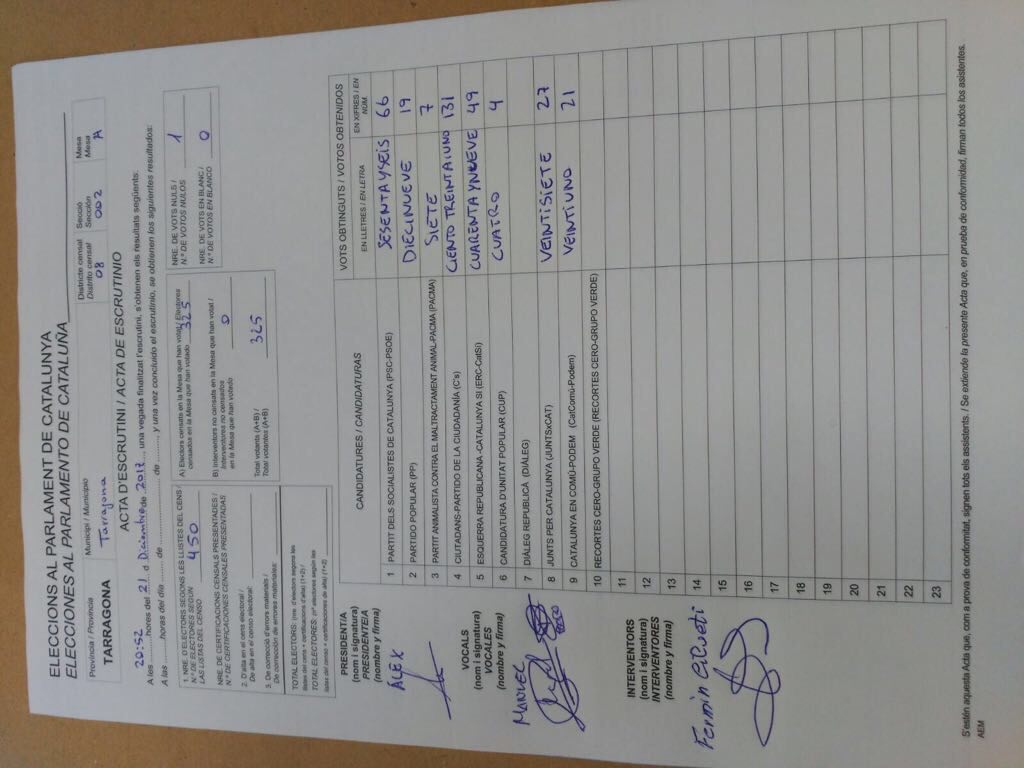 ELECCIONS AL PARLAMENT DE CATALUNYA
ELECCIONES AL PARLAMENTO DE CATALUÑA
Província / Provincia
TARRAGONA
Municipi / Municipio
Tarragona
Districte censal
Distrito censal
08
Secció
Sección
002
Mesa
Mesa
A
ACTA D'ESCRUTINI / ACTA DE ESCRUTINIO
A les 20:52 hores del 21 d Diciembre de 2017, una vegada finalitzat l'escrutini, s'obtenen els resultats següents:
A las horas del día de de y una vez concluido el escrutinio, se obtienen los siguientes resultados:
1. NRE. D'ELECTORS SEGONS LES LLISTES DEL CENS /
N.º DE ELECTORES SEGÚN
LAS LISTAS DEL CENSO
450
NRE. DE CERTIFICACIONS CENSALS PRESENTADES /
N.º DE CERTIFICACIONES CENSALES PRESENTADAS
2. D'alta en el cens electoral /
De alta en el censo electoral:
3. De correcció d'errors materials /
De corrección de errores materiales:
TOTAL ELECTORS: (nre. d'electors segons les
llistes del cens + certificacions d'alta) (1+2) /
TOTAL ELECTORES: (nº electores según las
listas del censo + certificaciones de alta) (1+2)
A) Electors censats en la Mesa que han votat/ Electores
censados en la Mesa que han votado 325
B) Interventors no censats en la Mesa que han votat /
Interventores no censados
en la Mesa que han votado 0
Total votants (A+B) /
Total votantes (A+B) 325
NRE. DE VOTS NULS /
N.º DE VOTOS NULOS 1
NRE. DE VOTS EN BLANC /
N.º DE VOTOS EN BLANCO 0
CANDIDATURES / CANDIDATURAS
VOTS OBTINGUTS / VOTOS OBTENIDOS
EN LLETRES / EN LETRA
EN XIFRES / EN NÚM.
1 PARTIT DELS SOCIALISTES DE CATALUNYA (PSC-PSOE) SESENTA Y SEIS 66
2 PARTIDO POPULAR (PP) DIECINUEVE 19
3 PARTIT ANIMALISTA CONTRA EL MALTRACTAMENT ANIMAL-PACMA (PACMA) SIETE 7
4 CIUTADANS-PARTIDO DE LA CIUDADANÍA (C's) CIENTO TREINTAIUNO 131
5 ESQUERRA REPUBLICANA -CATALUNYA SI (ERC-CatSí) CUARENTA Y NUEVE 49
6 CANDIDATURA D'UNITAT POPULAR (CUP) CUATRO 4
7 DIÀLEG REPUBLICÀ (DIÀLEG)
8 JUNTS PER CATALUNYA (JUNTSxCAT) VEINTISIETE 27
9 CATALUNYA EN COMÚ-PODEM (CatComú-Podem) VEINTIUNO 21
10 RECORTES CERO-GRUPO VERDE (RECORTES CERO-GRUPO VERDE)
11
12
13
14
15
16
17
18
19
20
21
22
23
PRESIDENTIA
(nom i signatura)
PRESIDENTE/A
(nombre y firma)
ÁLEX
VOCALS
(nom i signatura)
VOCALES
(nombre y firma)
MANUEL
INTERVENTORS
(nom i signatura)
INTERVENTORES
(nombre y firma)
Fermin
S'estén aquesta Acta que, com a prova de conformitat, signen tots els assistents. / Se extiende la presente Acta que, en prueba de conformidad, firman todos los asistentes.
AEM